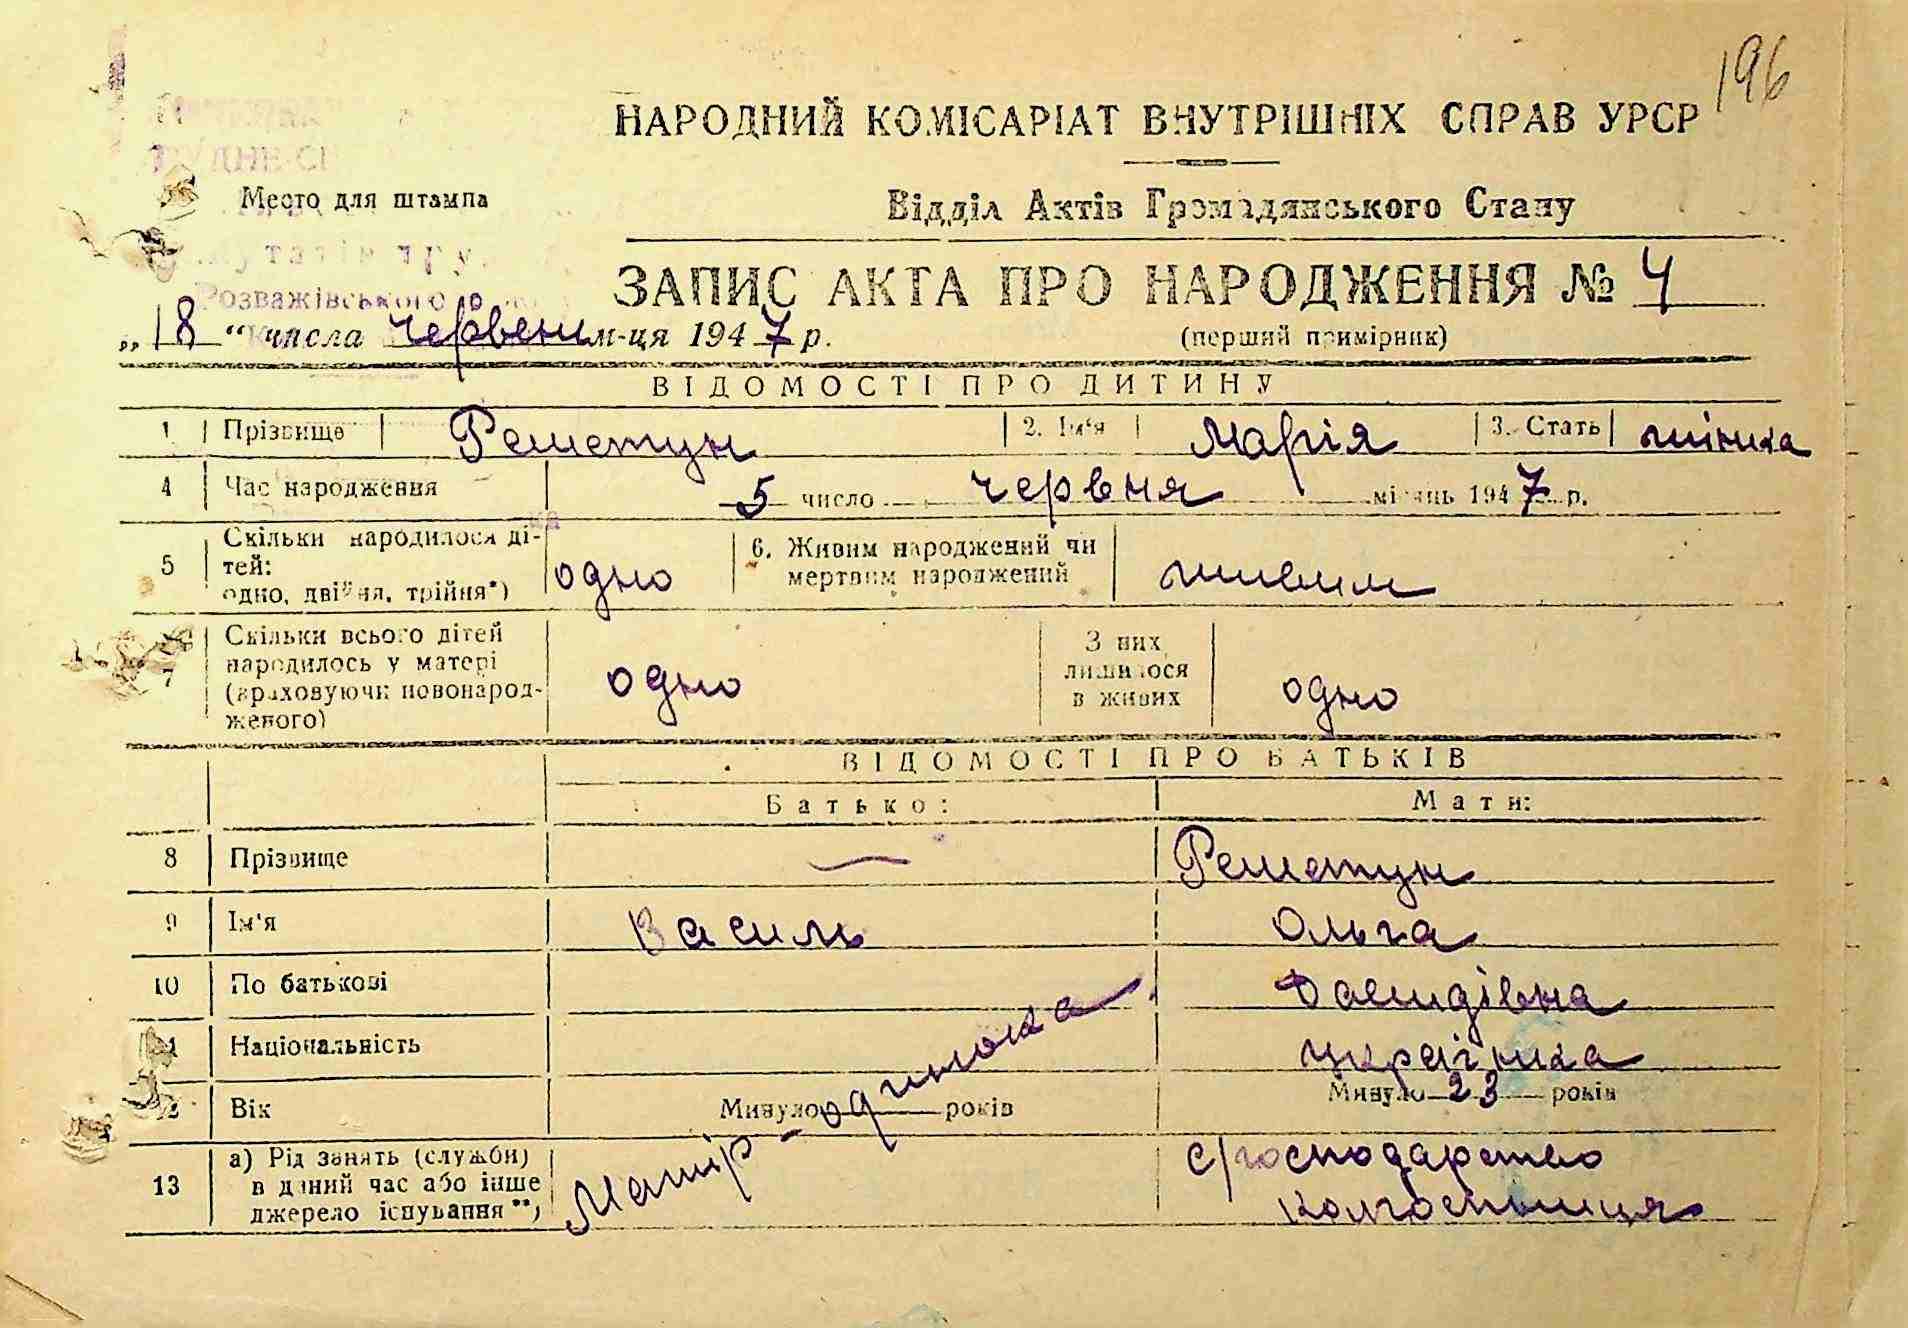 196
НАРОДНИЙ КОМІСАРІАТ ВНУТРІШНІХ СПРАВ УРСР
Место для штампа
Відділ Актів Громадянського Стану
Розважівського
ЗАПИС АКТА ПРО НАРОДЖЕННЯ № 4
„18“ числа червень м-ця 1947 р.
(перший примірник)
ВІДОМОСТІ ПРО ДИТИНУ
1 Прізвище Решетун 2. Ім'я Марія 3. Стать жінка
4 Час народження 5 число червня місяць 1947 р.
5 Скільки народилося ді-
тей:
одно, двійня, трійня*) одно
6. Живим народжений чи
мертвим народжений живим
7 Скільки всього дітей
народилось у матері
(враховуючи новонарод-
женого) одно
З них
лишилося
в живих одно
ВІДОМОСТІ ПРО БАТЬКІВ
Батько: Мати:
8 Прізвище — Решетун
9 Ім'я Василь Ольга
10 По батькові Давидівна
11 Національність українка
12 Вік Минуло років Минуло 23 років
Матір - одинока
13 а) Рід занять (служби)
в даний час або інше
джерело існування**)
с/господарство
колгоспниця